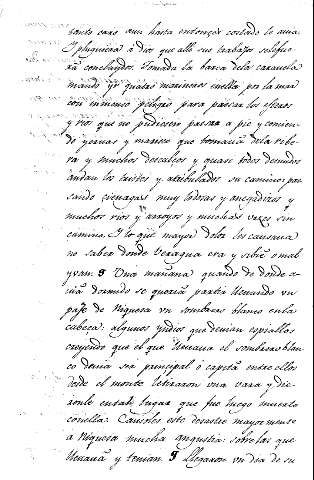 tanto caro aun hasta entonces costado le auia.
I pluguiera a dios que alli sus trabajos se le fue
ran concluidos. Tomada la barca dela carauela
mando yr quatro marineros en ella por la mar
con inmenso peligro para passar los esteros
y rios que no pudiesen passar a pie y comien
do yeruas y marisco que tomauan dela ribe
ra y muchos descalços y quasi todos desnudos
andan los tristes y atribulados su camino pas
sando cienagas muy lodosas y anegadizos y
muchos rios y arroyos y muchas vezes sin
camino. I lo que mayor dolor les causaua
no saber donde Veragua era y si bien o mal
yvan. ¶ Una mañana quando de donde a-
uian dormido se querian partir lleuando un
paje de Niquesa un sombrero blanco en la
cabeça: algunos yndios que deuian espiallos
creyendo que el que lleuaua el sombrero blan
co deuia ser principal o capitan entre ellos
desde el monte le tiraron una vara y die
ronle en tal lugar que fue luego muerto
con ella. Causoles este desastre mayormente
a Niquesa mucha angustia: sobre las que
lleuaua y tenian ¶ Llegaron un dia de su